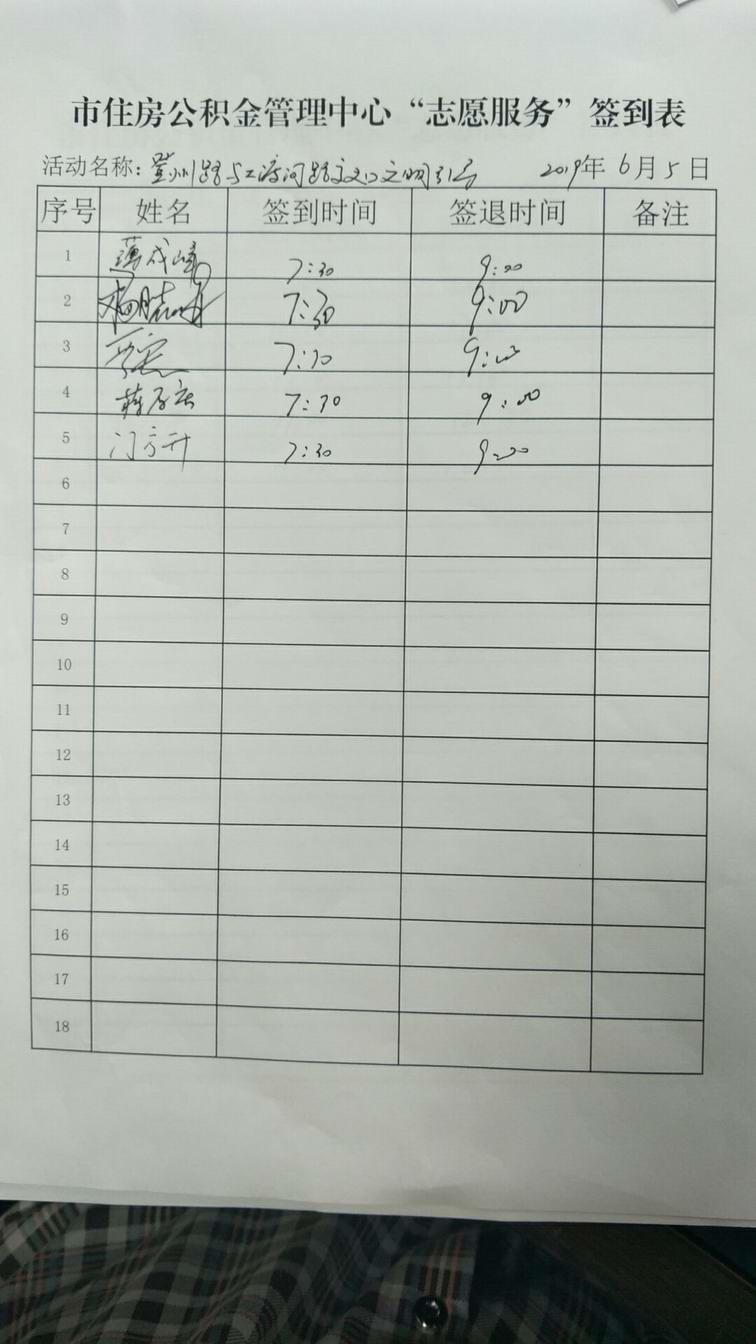 市住房公积金管理中心“志愿服务”签到表
活动名称：登州路与工商河路交叉口文明引导 2019年6月5日
序号 姓名 签到时间 签退时间 备注
1 薄成峰 7:30 9:00
2 7:30 9:00
3 7:30 9:00
4 7:30 9:00
5 门方升 7:30 9:00
6
7
8
9
10
11
12
13
14
15
16
17
18